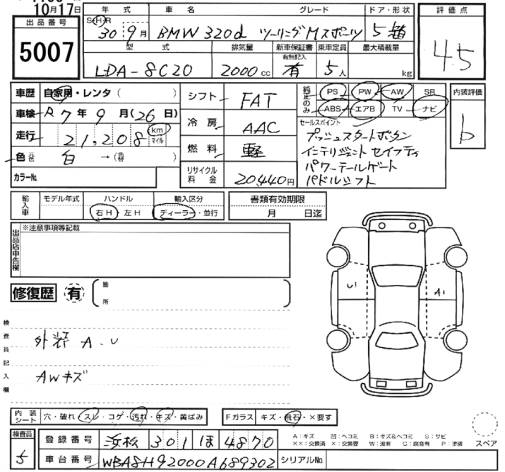 10月17日
出品番号
5007
年式 車名 グレード ドア・形状
SHR 30 9月 BMW 320d ツーリングMスポーツ 5 箱
型式 排気量 新車保証書 乗車定員 最大積載量
有無記入
LDA-8C20 2000cc 有 5人 kg
評価点
4.5
車歴 自家用・レンタ(
車検 R7年9月(26日
走行 21,208 km マイル
色 白→(
カラーNo.
シフト FAT
冷房 AAC
燃料 軽
リサイクル料金 20,440円
純正のみ PS PW AW SR
ABS エアB TV ナビ
セールスポイント
プッシュスタートボタン
インテリジェントセイフティ
パワーテールゲート
パドルシフト
内装評価
b
輸入車 モデル年式 ハンドル 輸入区分 書類有効期限
右H 左H ディーラー・並行 月 日迄
出品店申告欄
※注意事項等記載
修復歴 有 箇所
検査員記入欄
外装 A.U
AWキズ
U1 A1
内装シート 穴・破れ・スレ・コゲ・汚れ・キズ・黄ばみ Fガラス キズ・飛石・×要す
A:キズ 凹:ヘコミ B:キズ&ヘコミ S:サビ
スペア
検査員
5
登録番号 浜松 301 ほ 4870
車台番号 WBA8H92000A689302 シリアルNo.